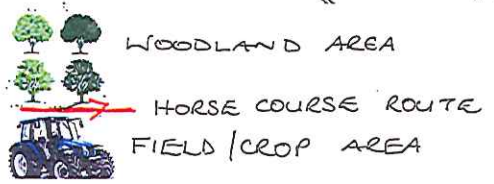 WOODLAND AREA
HORSE COURSE ROUTE
FIELD/CROP AREA